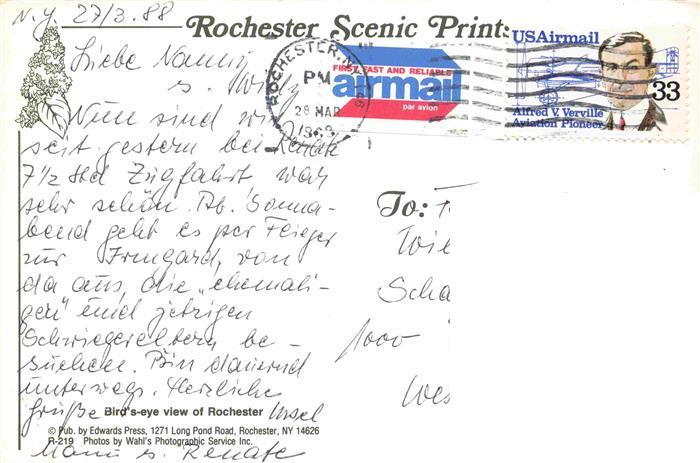 N.Y. 27/3.88
Rochester Scenic Print:
Liebe Nanny
u. Willy
Nun sind wir
seit gestern bei Renate
7½ Std Zugfahrt, war
sehr schön. Ab. Sonna-
bend geht es per Flieger
zur Irmgard, von
da aus, die „ehemali-
gen" und jetzigen
Schwiegereltern be-
suchen. Bin dauernd
unterwegs. Herzliche
Grüße Ursel
Bird's-eye view of Rochester
© Pub. by Edwards Press, 1271 Long Pond Road, Rochester, NY 14626
R-219 Photos by Wahl's Photographic Service Inc.
u. Renate
ROCHESTER, N.Y.
PM
28 MAR
FIRST, FAST AND RELIABLE
airmail
par avion
USAirmail
33
Alfred V. Verville
Aviation Pioneer
To:
Wie
Scha
1000
Wes